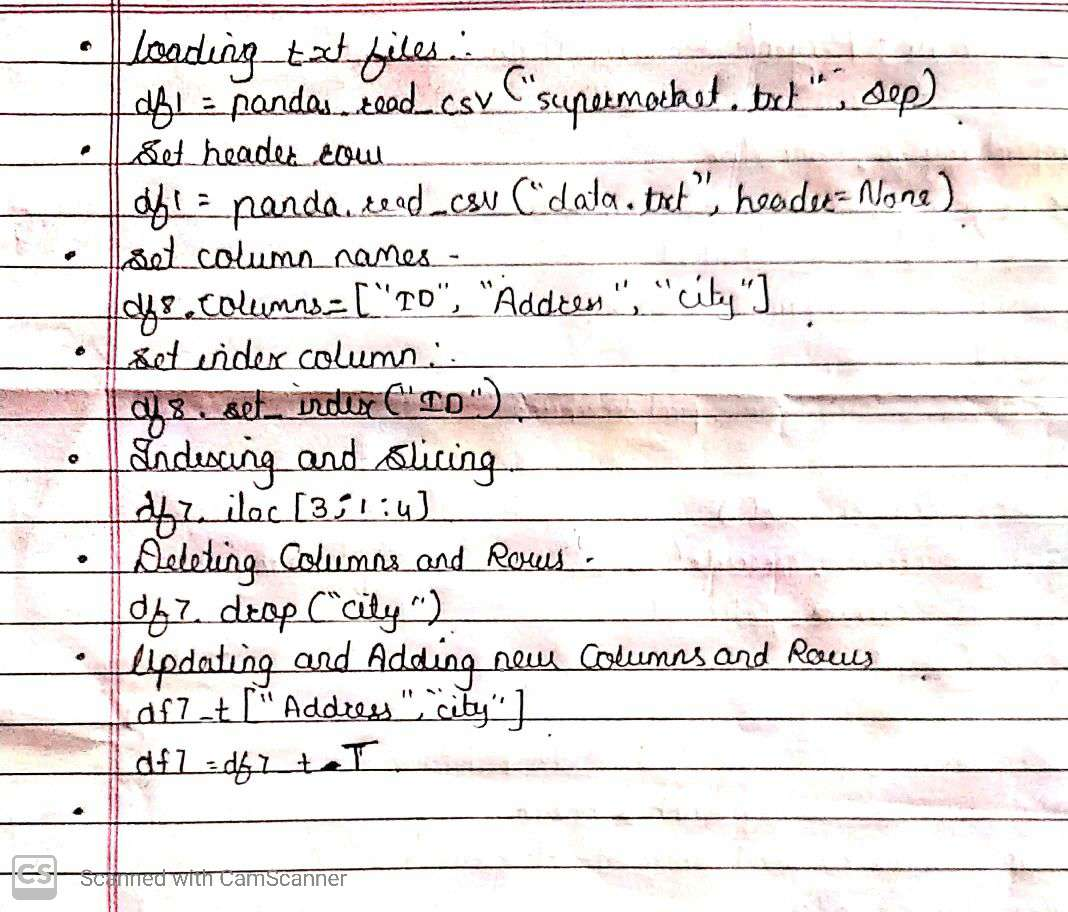 • Loading txt files :
df1 = pandas.read_csv ("supermarket.txt", sep)
• Set header row
df1 = panda.read_csv ("data.txt", header=None)
• set column names -
df8.columns=["ID", "Address", "city"]
• set index column :
df8.set_index ("ID")
• Indexing and Slicing
df7.iloc [3;1:4]
• Deleting Columns and Rows -
df7.drop ("city")
• Updating and Adding new Columns and Rows
df7_t ["Address", "city"]
df7 = df7_t.T
•
CS Scanned with CamScanner